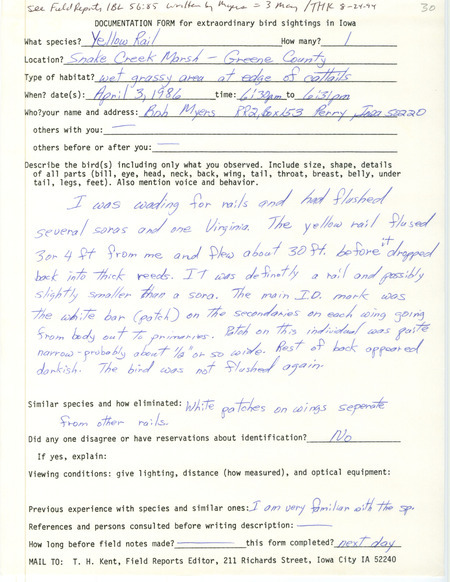 See Field Reports, IBL 56:85 written by Myers = 3 May /THK 8-24-94
30
DOCUMENTATION FORM for extraordinary bird sightings in Iowa
What species? Yellow Rail How many? 1
Location? Snake Creek Marsh - Greene County
Type of habitat? wet grassy area at edge of cattails
When? date(s): April 3, 1986 time: 6:30pm to 6:31pm
Who?your name and address: Bob Myers RR2, Box 153 Perry Iowa 50220
others with you: —
others before or after you: —
Describe the bird(s) including only what you observed. Include size, shape, details
of all parts (bill, eye, head, neck, back, wing, tail, throat, breast, belly, under
tail, legs, feet). Also mention voice and behavior.
I was wading for rails and had flushed
several soras and one Virginia. The yellow rail flused
3 or 4 ft from me and flew about 30 ft. before it dropped
back into thick reeds. IT was definatly a rail and possibly
slightly smaller than a sora. The main I.D. mark was
the white bar (patch) on the secondaries on each wing going
from body out to primaries. Patch on this individual was quite
narrow - probably about ½" or so wide. Rest of back appeared
darkish. The bird was not flushed again.
Similar species and how eliminated: White patches on wings seperate
from other rails.
Did any one disagree or have reservations about identification? No
If yes, explain:
Viewing conditions: give lighting, distance (how measured), and optical equipment:
Previous experience with species and similar ones: I am very familiar with the sp.
References and persons consulted before writing description: —
How long before field notes made? — this form completed? next day
MAIL TO: T. H. Kent, Field Reports Editor, 211 Richards Street, Iowa City IA 52240